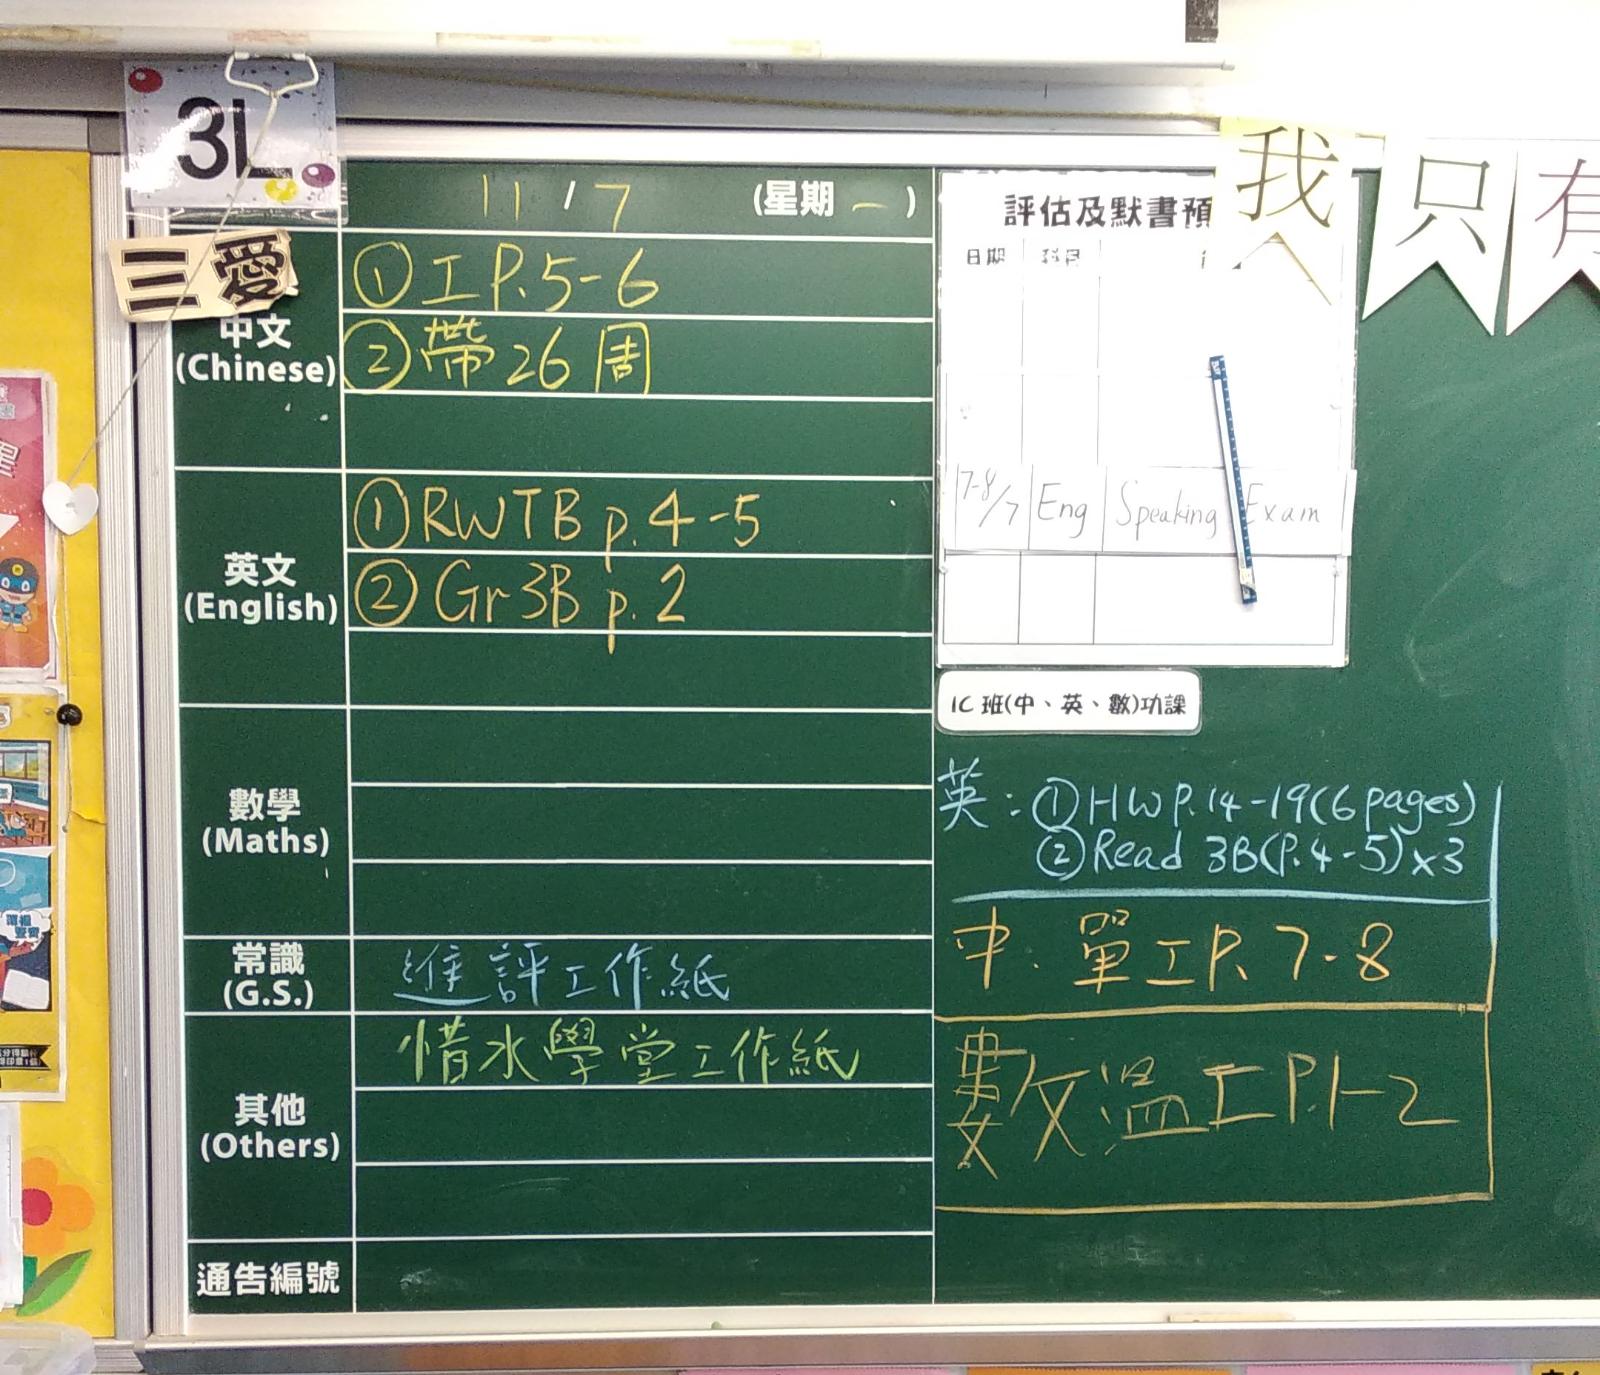 3L
三愛
11/7 (星期一)
中文
(Chinese)
①工P.5-6
②帶26周
英文
(English)
①RWTB p.4-5
②Gr3B p.2
數學
(Maths)
常識
(G.S.)
進評工作紙
其他
(Others)
惜水學堂工作紙
通告編號
評估及默書預
日期 科目
7-8/7 Eng Speaking Exam
我只有
IC 班(中、英、數)功課
英：①HW P.14-19(6 pages)
②Read 3B(P.4-5)x3
中．單工P.7-8
數溫工P.1-2